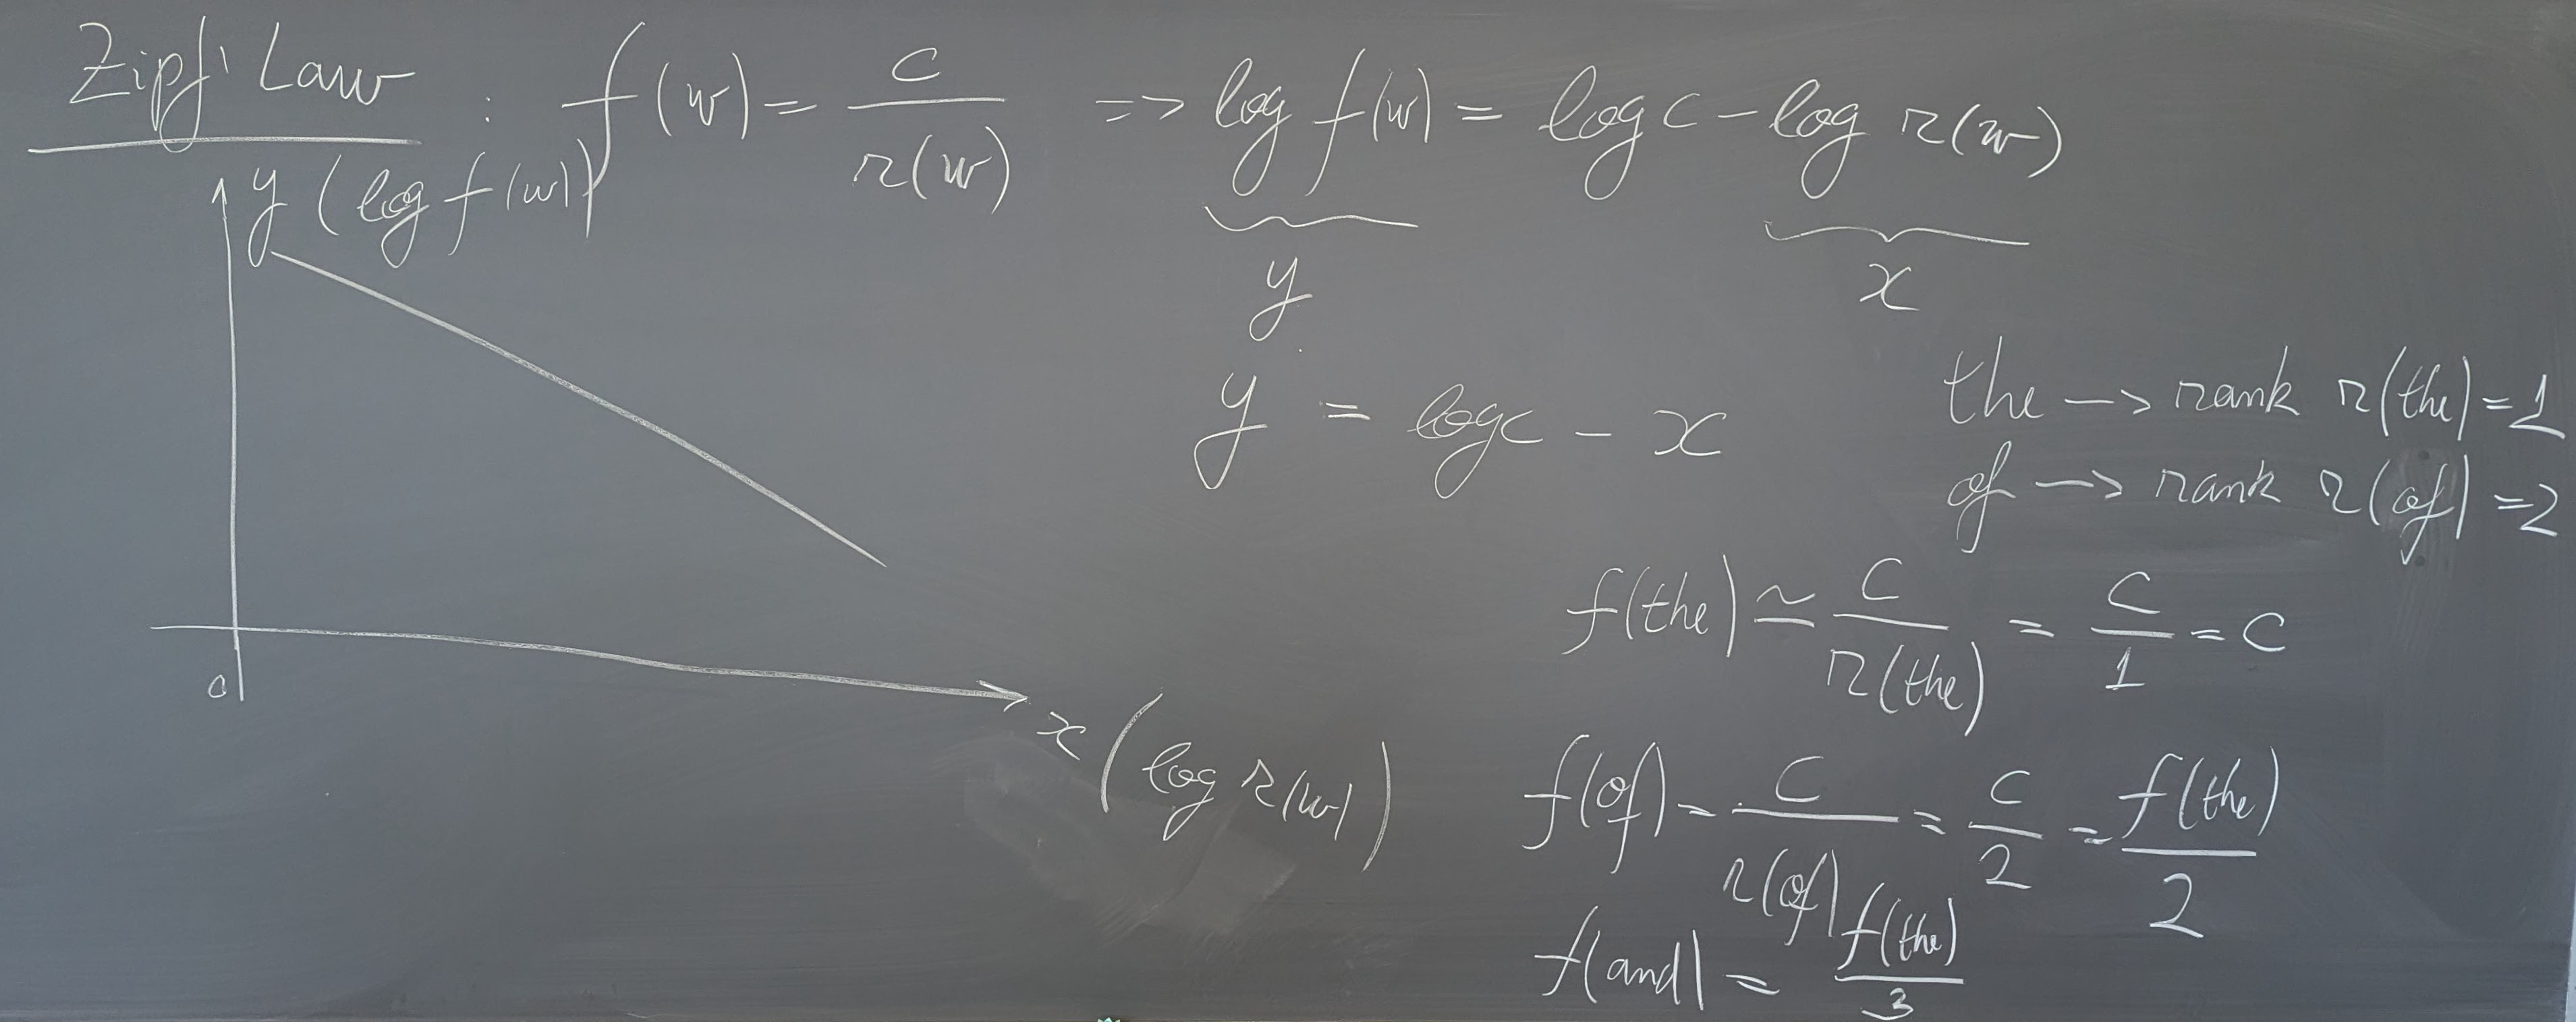 Zipf' Law : f(w) = c / r(w) => log f(w) = log c - log r(w)
y (log f(w))
y x
y = log c - x
the -> rank r(the) = 1
of -> rank r(of) = 2
f(the) ≃ c / r(the) = c / 1 = c
0
x (log r(w))
f(of) = c / r(of) = c / 2 = f(the) / 2
f(and) = f(the) / 3